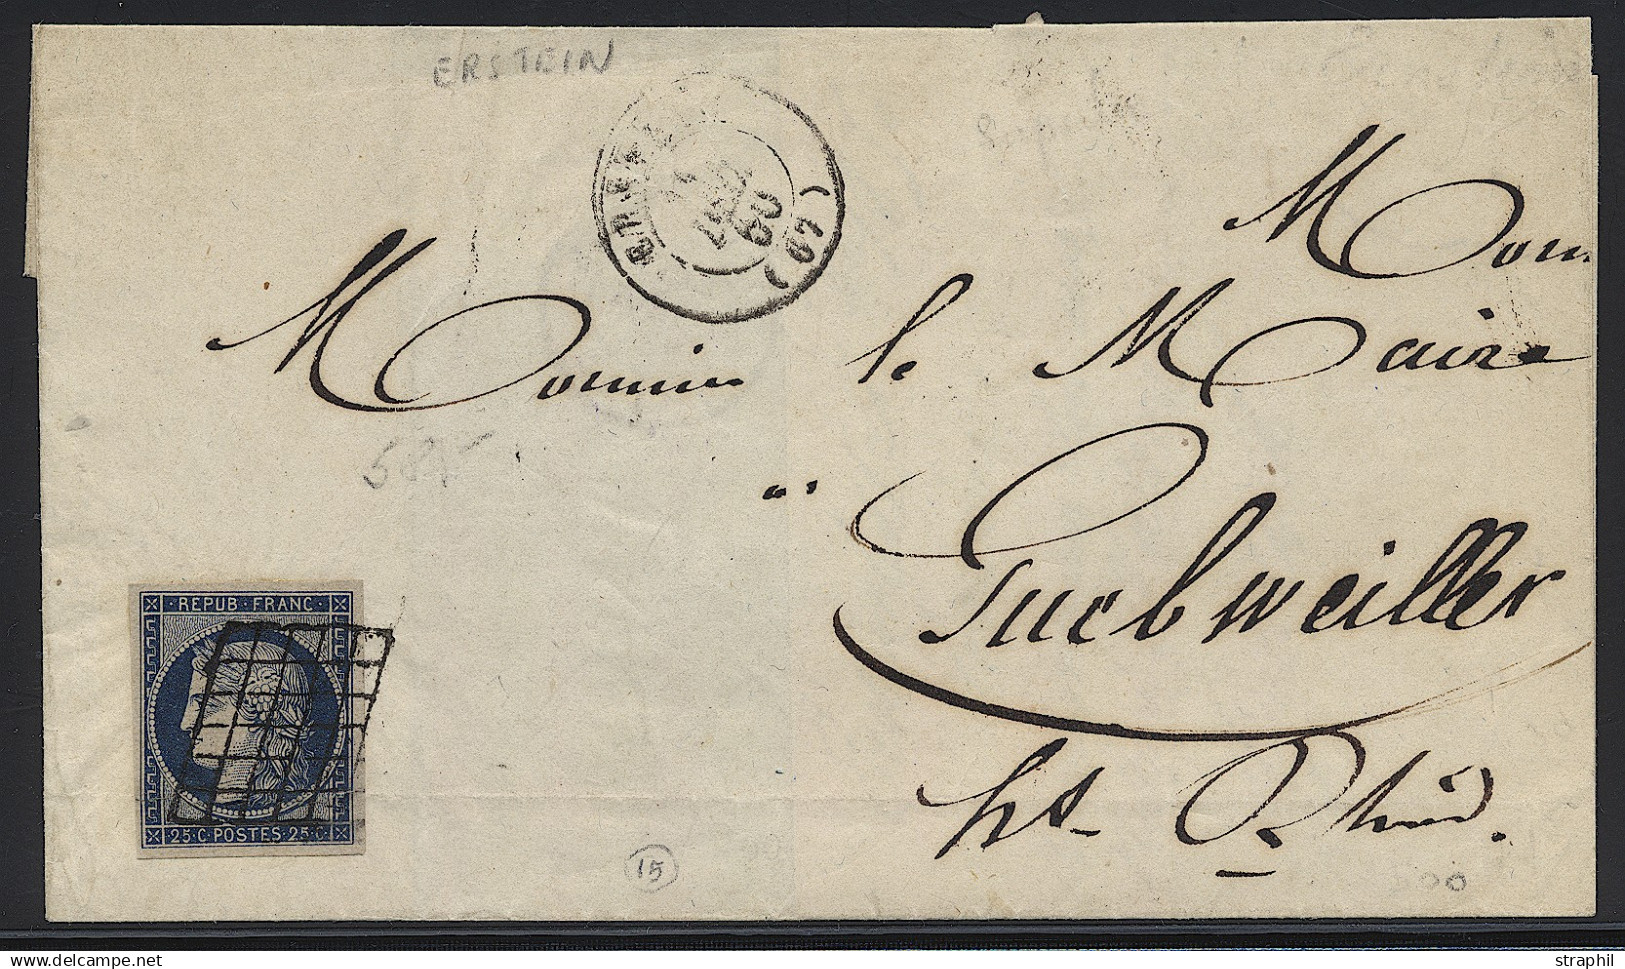 ERSTEIN
(67)
60
Mon
Monsieur le Maire
Guebweiller
ht. Rhin.
REPUB·FRANC·
25·C·POSTES·25·C·
15
straphil